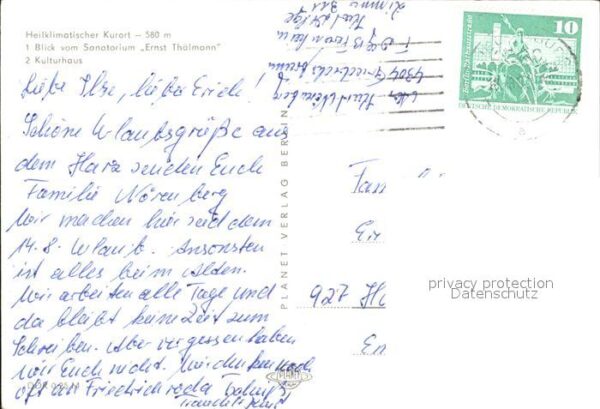 Heilklimatischer Kurort – 580 m
1 Blick vom Sanatorium „Ernst Thälmann"
2 Kulturhaus
Liebe Ilse, lieber Erich!
Schöne Urlaubsgrüße aus
dem Harz senden Euch
Familie Nörenberg
Wir machen hier seit dem
14.8. Urlaub. Ansonsten
ist alles beim Alten.
Wir arbeiten alle Tage und
da bleibt keine Zeit zum
Schreiben. Aber vergessen haben
wir Euch nicht. Wir denken noch
oft an Friedrichroda
PLANET VERLAG BERLIN
10
Berlin, Rathausstraße
DEUTSCHE DEMOKRATISCHE REPUBLIK
Fam
Er
927
En
privacy protection
Datenschutz